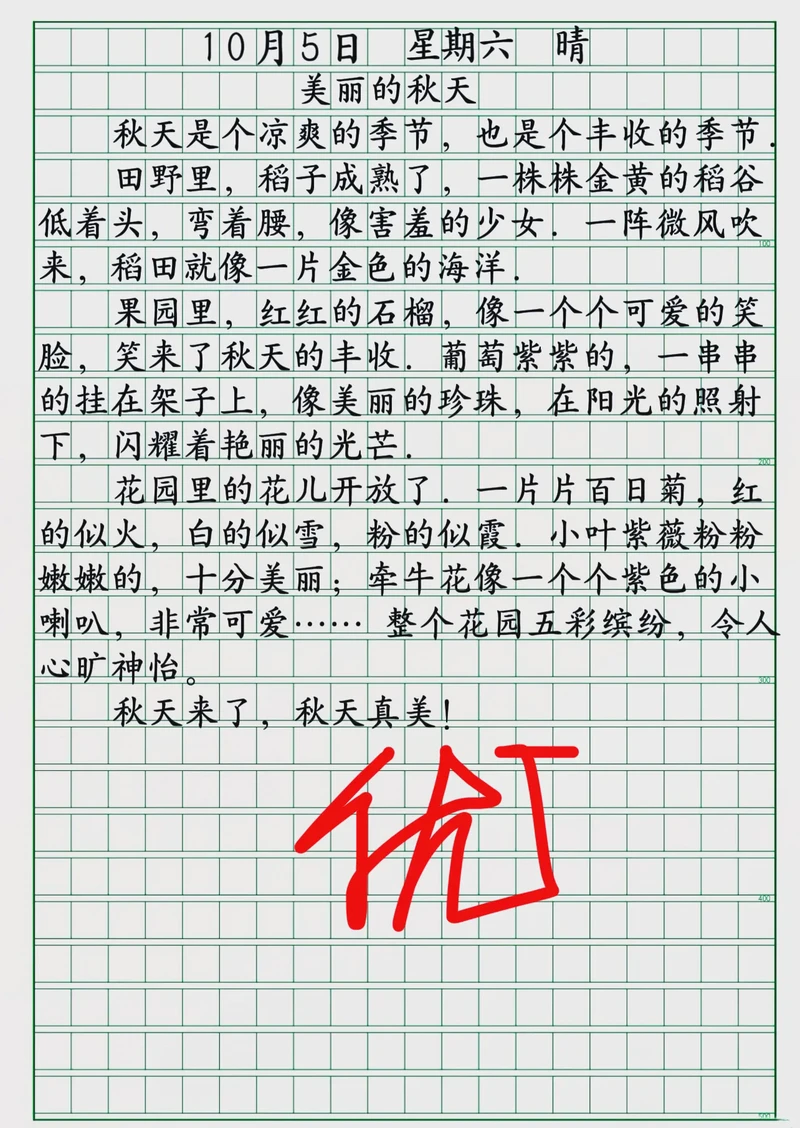 10月5日 星期六 晴
美丽的秋天
秋天是个凉爽的季节，也是个丰收的季节．
田野里，稻子成熟了，一株株金黄的稻谷
低着头，弯着腰，像害羞的少女．一阵微风吹
100
来，稻田就像一片金色的海洋．
果园里，红红的石榴，像一个个可爱的笑
脸，笑来了秋天的丰收．葡萄紫紫的，一串串
的挂在架子上，像美丽的珍珠，在阳光的照射
下，闪耀着艳丽的光芒．
200
花园里的花儿开放了．一片片百日菊，红
的似火，白的似雪，粉的似霞．小叶紫薇粉粉
嫩嫩的，十分美丽；牵牛花像一个个紫色的小
喇叭，非常可爱…… 整个花园五彩缤纷，令人
心旷神怡。
300
秋天来了，秋天真美！
优
400
500